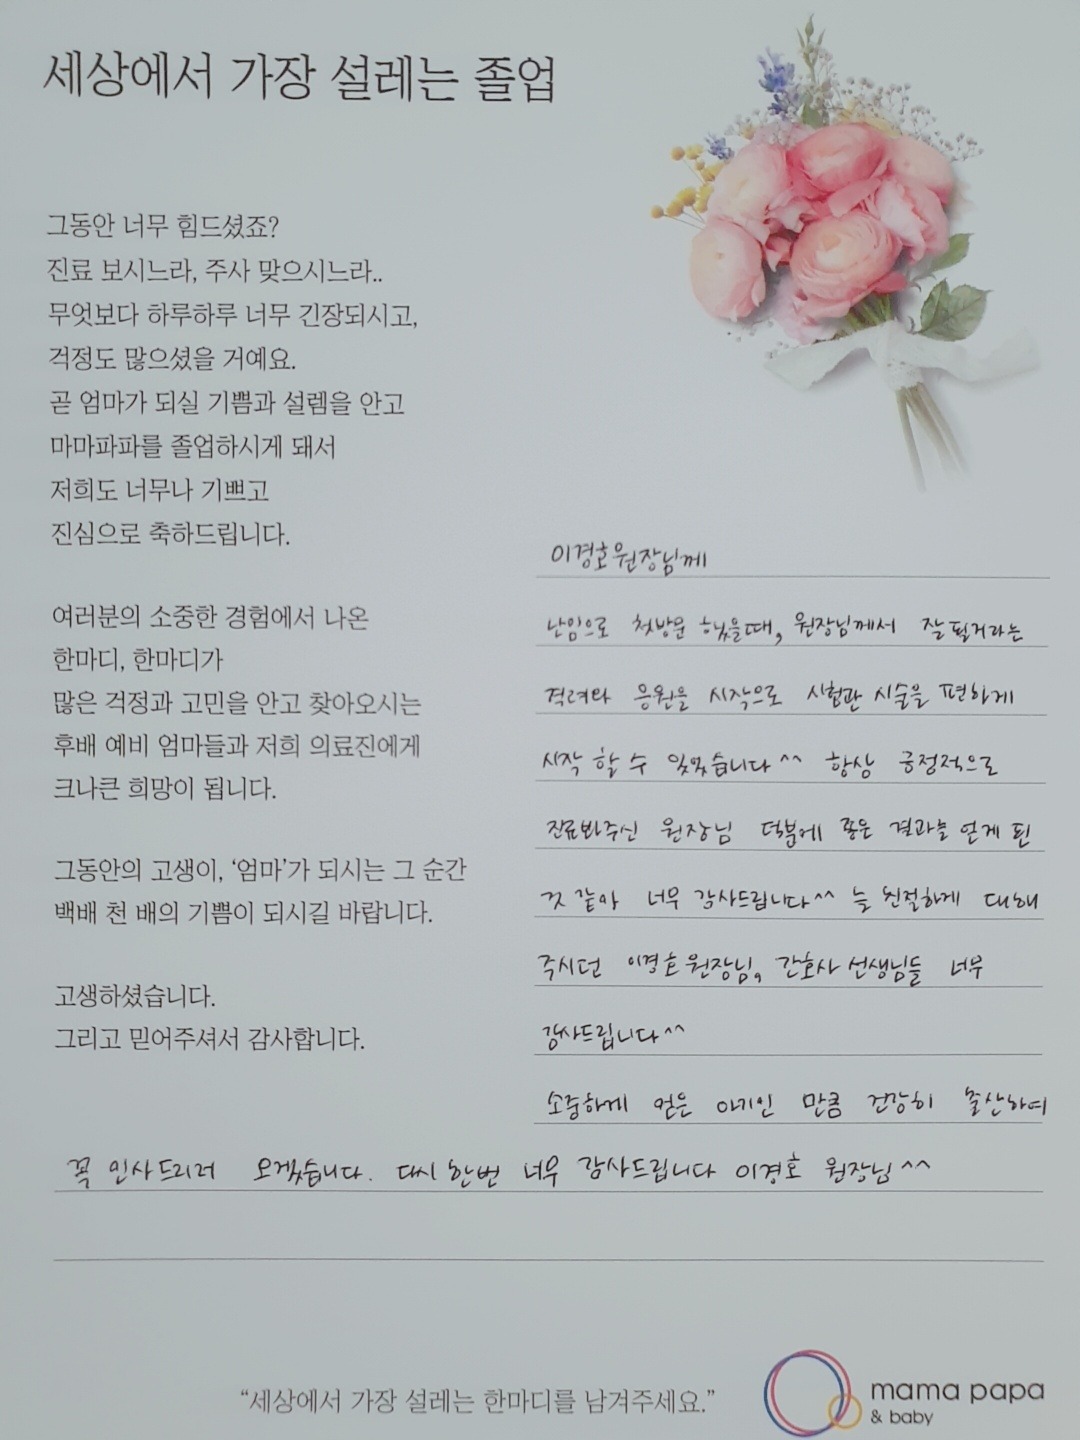 세상에서 가장 설레는 졸업
그동안 너무 힘드셨죠?
진료 보시느라, 주사 맞으시느라..
무엇보다 하루하루 너무 긴장되시고,
걱정도 많으셨을 거예요.
곧 엄마가 되실 기쁨과 설렘을 안고
마마파파를 졸업하시게 돼서
저희도 너무나 기쁘고
진심으로 축하드립니다.
여러분의 소중한 경험에서 나온
한마디, 한마디가
많은 걱정과 고민을 안고 찾아오시는
후배 예비 엄마들과 저희 의료진에게
크나큰 희망이 됩니다.
그동안의 고생이, ‘엄마’가 되시는 그 순간
백배 천 배의 기쁨이 되시길 바랍니다.
고생하셨습니다.
그리고 믿어주셔서 감사합니다.
이경호원장님께
난임으로 첫방문 했을때, 원장님께서 잘될거라는
격려와 응원을 시작으로 시험관 시술을 편하게
시작 할 수 있었습니다^^ 항상 긍정적으로
진료봐주신 원장님 덕분에 좋은 결과를 얻게 된
것 같아 너무 감사드립니다^^ 늘 친절하게 대해
주시던 이경호원장님, 간호사 선생님들 너무
감사드립니다^^
소중하게 얻은 아기인 만큼 건강히 출산하여
꼭 인사드리러 오겠습니다. 다시 한번 너무 감사드립니다 이경호 원장님^^
“세상에서 가장 설레는 한마디를 남겨주세요.”
mama papa
& baby